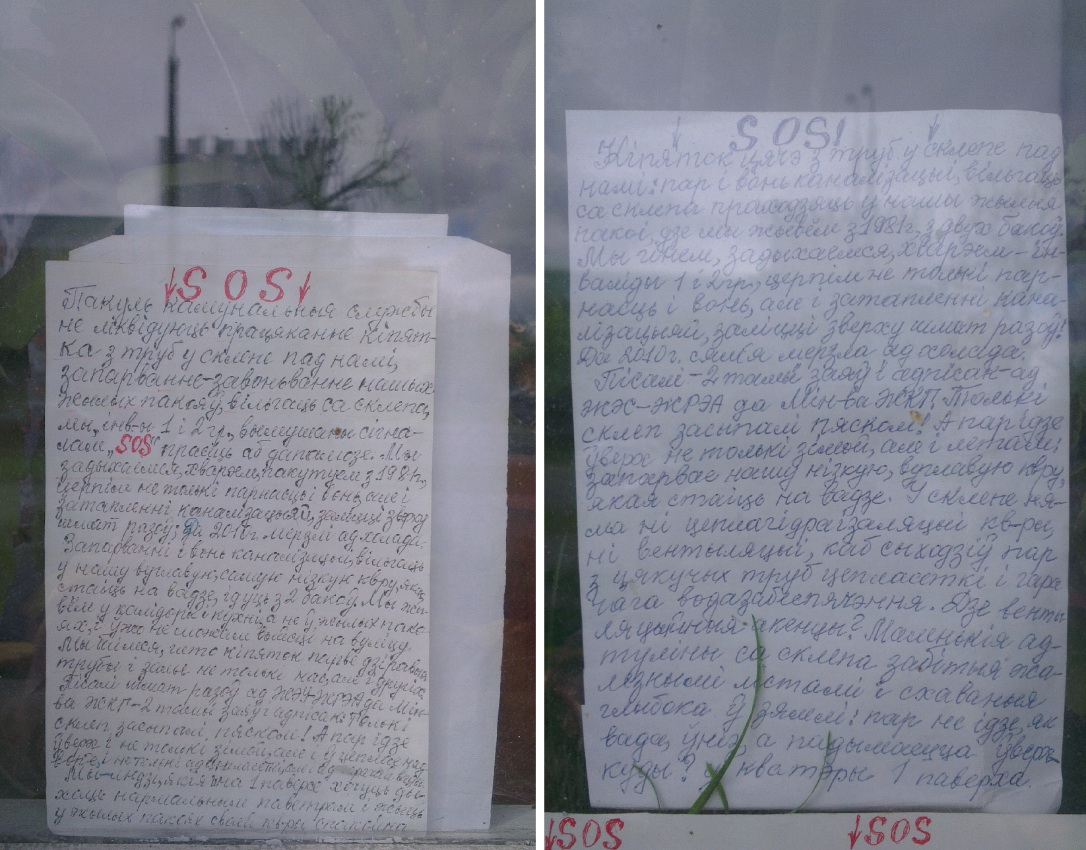 ↓SOS↓
Пакуль камунальныя службы
не ліквідуюць працяканне кіпят-
ка з труб у склепе пад намі,
запарванне-завоньванне нашых
жылых пакояў, вільгаць са склепа,
мы, інв-ы 1 і 2 гр., вымушаны сігна-
лам „SOS" прасіць аб дапамозе. Мы
задыхаемся, хварэем, пакутуем з 1981г.,
церпім не толькі парнасць і вонь, але і
затапленні каналізацыяй, заліцці зверху
шмат разоў; Да 2010г. мерзлі ад холада.
Запарванні і вонь каналізацыі, вільгаць
у нашу вуглавую, самую нізкую кв-ру, якая
стаіць на вадзе, ідуць з 2 бакоў. Мы жы-
вём у калідоры і кухні, а не у жылых пако-
ях, і ўжо не можам выйсці на вуліцу.
Мы баімся, што кіпяток парве дзіравыя
трубы і залье не толькі нас, але і другіх.
Пісалі шмат разоў ад ЖЭУ-ЖРЭА да Мін-
ва ЖКГ-2 тамы заяў і адпісак! Толькі
склеп засыпалі пяском! А пар ідзе
ўверх і не толькі зімой, але і ў цёплы час
Мы-людзі, якія на 1 паверсе хочуць ды-
хаць нармальным паветрам і жыць
у жылых пакоях сваёй кв-ры спакойна
SOS!
Кіпяток цячэ з труб у склепе пад
намі: пар і вонь каналізацыі, вільгаць
са склепа праходзяць у нашы жылыя
пакоі, дзе мы жывём з 1981г. з двух бакоў.
Мы гінем, задыхаемся, хварэем-ін-
валіды 1 і 2гр., церпім не толькі пар-
насць і вонь, але і затапленні кана-
лізацыяй, заліцці зверху шмат разоў!
Да 2010г. сям'я мерзла ад холада.
Пісалі-2 тамы заяў і адпісак-ад
ЖЭС-ЖРЭА да Мін-ва ЖКГ. Толькі
склеп засыпалі пяском! А пар ідзе
ўверх не толькі зімой, але і летам:
запарвае нашу нізкую, вуглавую кв-ру,
якая стаіць на вадзе. У склепе ня-
ма ні цеплагідраізаляцыі кв-ры,
ні вентыляцыі, каб сыходзіў пар
з цякучых труб цепласеткі і гара-
чага водазабеспячэння. Дзе венты-
ляцыйныя акенцы? Маленькія ад-
туліны са склепа забітыя жа-
лезнымі лістамі і схаваныя
глыбока ў зямлі: пар не ідзе, як
вада, ўніз, а падымаецца ўверх-
куды? У кватэры 1 паверха.
↓SOS ↓SOS